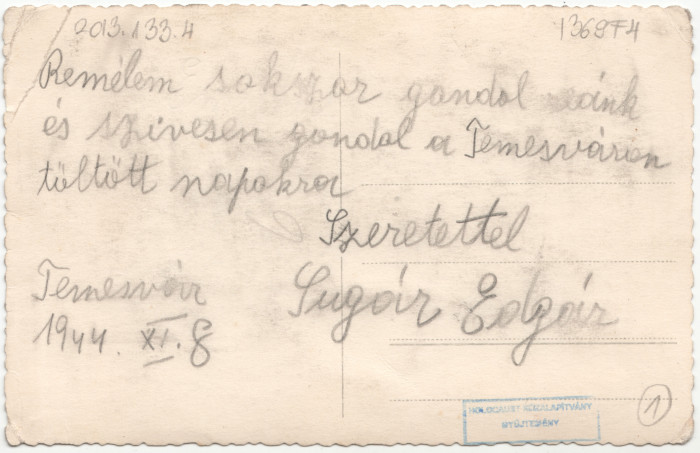 2013.133.4
136974
Remélem sokszor gondol ránk
és szivesen gondol a Temesváron
töltött napokra
Szeretettel
Sugár Edgár
Temesvár
1944. XI. 8
HOLOCAUST KÖZALAPÍTVÁNY
GYŰJTEMÉNY
1